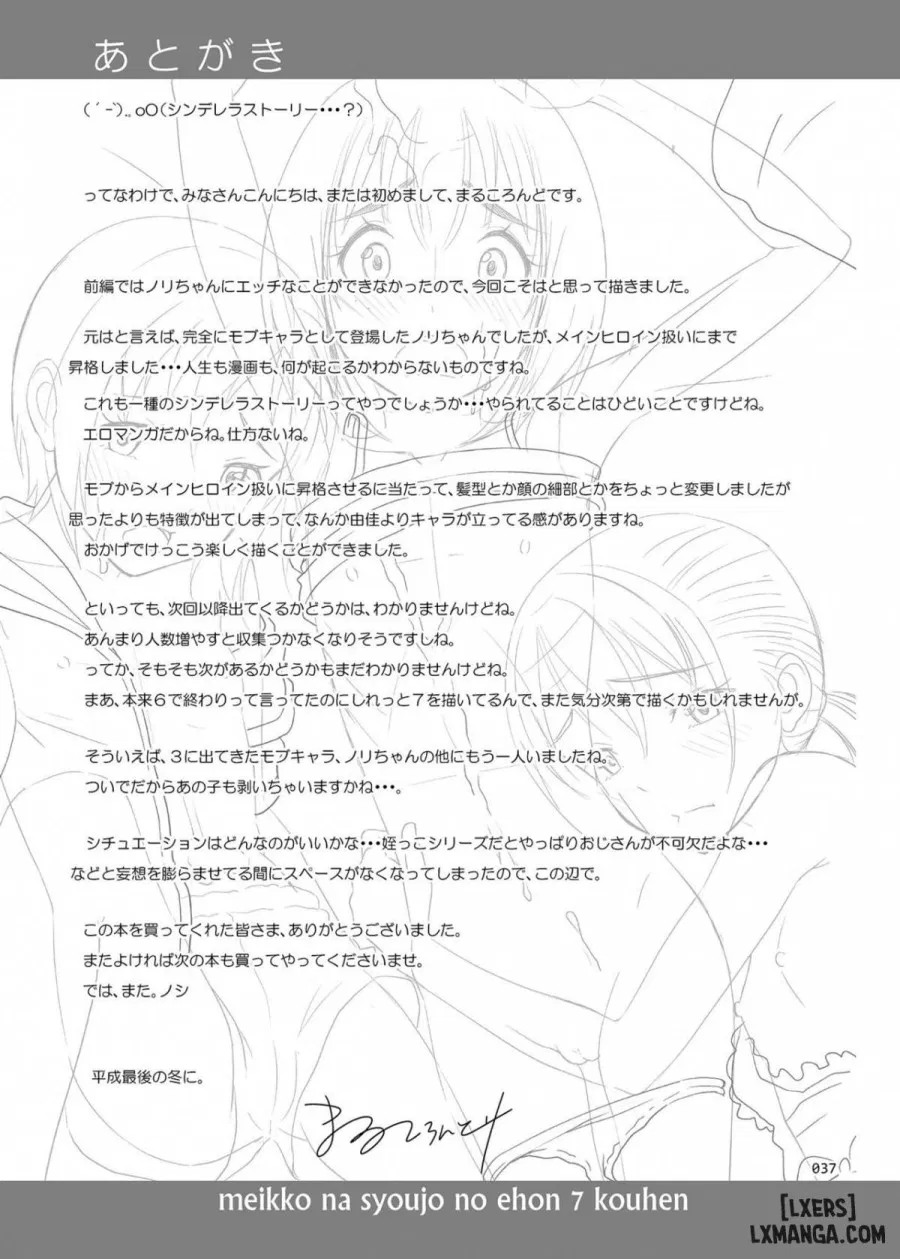 あとがき
( ´-`).｡oO(シンデレラストーリー・・・？)
ってなわけで、みなさんこんにちは、または初めまして、まるころんどです。
前編ではノリちゃんにエッチなことができなかったので、今回こそはと思って描きました。
元はと言えば、完全にモブキャラとして登場したノリちゃんでしたが、メインヒロイン扱いにまで
昇格しました・・・人生も漫画も、何が起こるかわからないものですね。
これも一種のシンデレラストーリーってやつでしょうか・・・やられてることはひどいことですけどね。
エロマンガだからね。仕方ないね。
モブからメインヒロイン扱いに昇格させるに当たって、髪型とか顔の細部とかをちょっと変更しましたが
思ったよりも特徴が出てしまって、なんか由佳よりキャラが立ってる感がありますね。
おかげでけっこう楽しく描くことができました。
といっても、次回以降出てくるかどうかは、わかりませんけどね。
あんまり人数増やすと収集つかなくなりそうですしね。
ってか、そもそも次があるかどうかもまだわかりませんけどね。
まあ、本来６で終わりって言ってたのにしれっと７を描いてるんで、また気分次第で描くかもしれませんが。
そういえば、３に出てきたモブキャラ、ノリちゃんの他にもう一人いましたね。
ついでだからあの子も剥いちゃいますかね・・・。
シチュエーションはどんなのがいいかな・・・姪っこシリーズだとやっぱりおじさんが不可欠だよな・・・
などと妄想を膨らませてる間にスペースがなくなってしまったので、この辺で。
この本を買ってくれた皆さま、ありがとうございました。
またよければ次の本も買ってやってくださいませ。
では、また。ノシ
平成最後の冬に。
037
meikko na syoujo no ehon 7 kouhen
[LXERS]
LXMANGA.COM